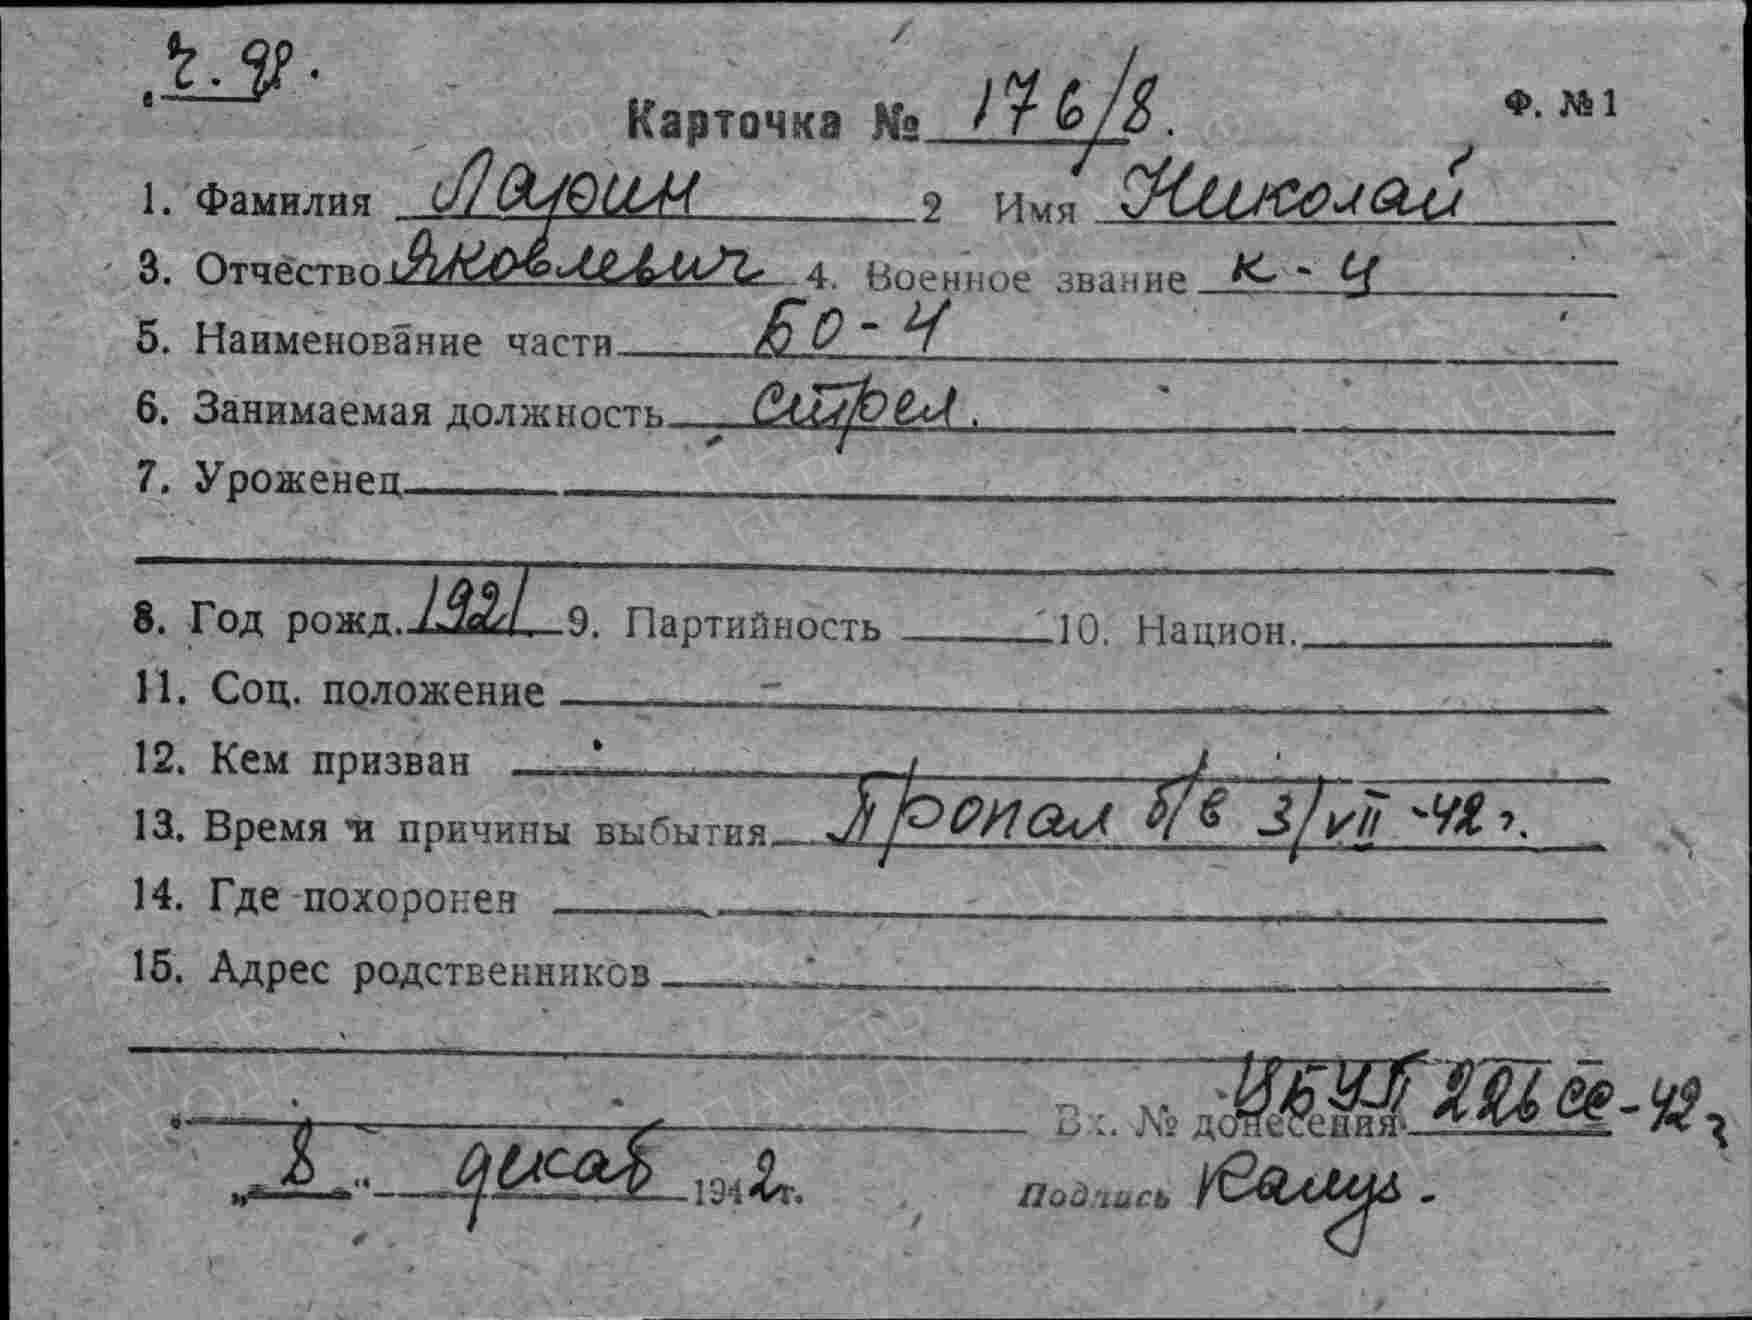 Карточка № 176/8. Ф. №1
1. Фамилия Ларин 2 Имя Николай
3. Отчество Яковлевич 4. Военное звание к-ц
5. Наименование части БО-4
6. Занимаемая должность стрел.
7. Уроженец
8. Год рожд. 1921. 9. Партийность 10. Национ.
11. Соц. положение
12. Кем призван
13. Время и причины выбытия Пропал б/в 3/VII-42 г.
14. Где похоронен
15. Адрес родственников
Вх. № донесения 226сс-42 г
„8" декаб 1942г. Подпись